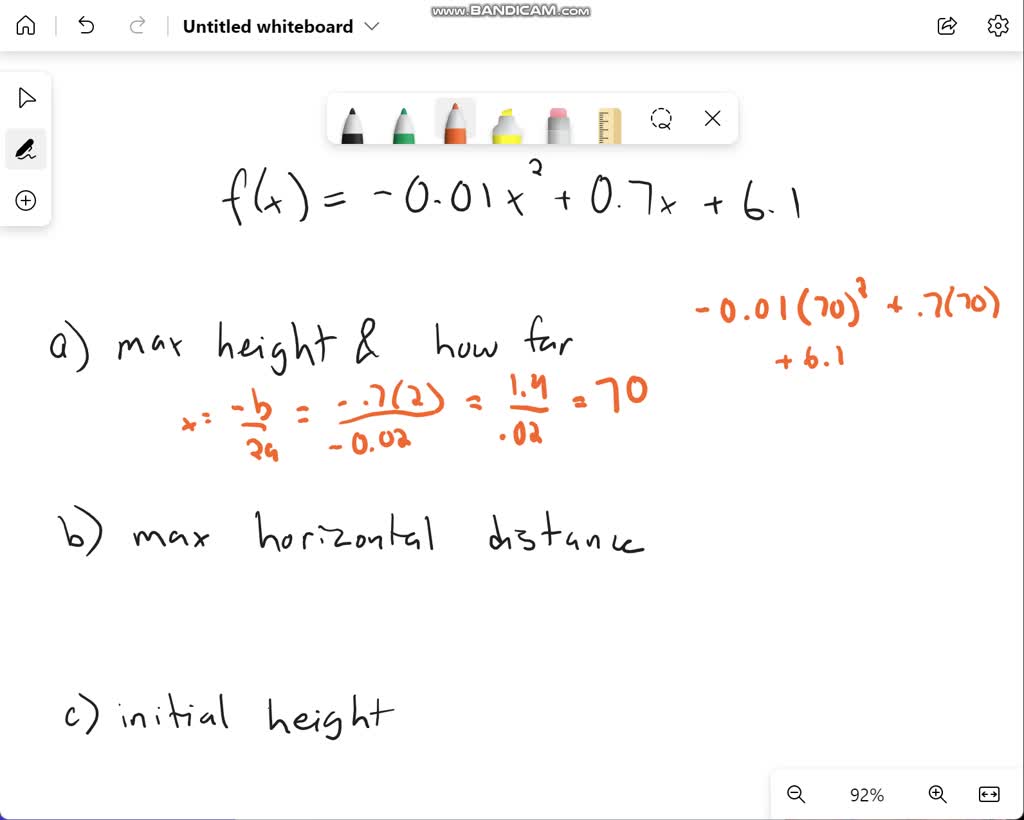 www.BANDICAM.com
Untitled whiteboard
f(x) = -0.01x² + 0.7x + 6.1
-0.01(70)² + .7(70)
+ 6.1
a) max height & how far
x = -b/2a = -.7(2)/-0.02 = 1.4/.02 = 70
b) max horizontal distance
c) initial height
92%